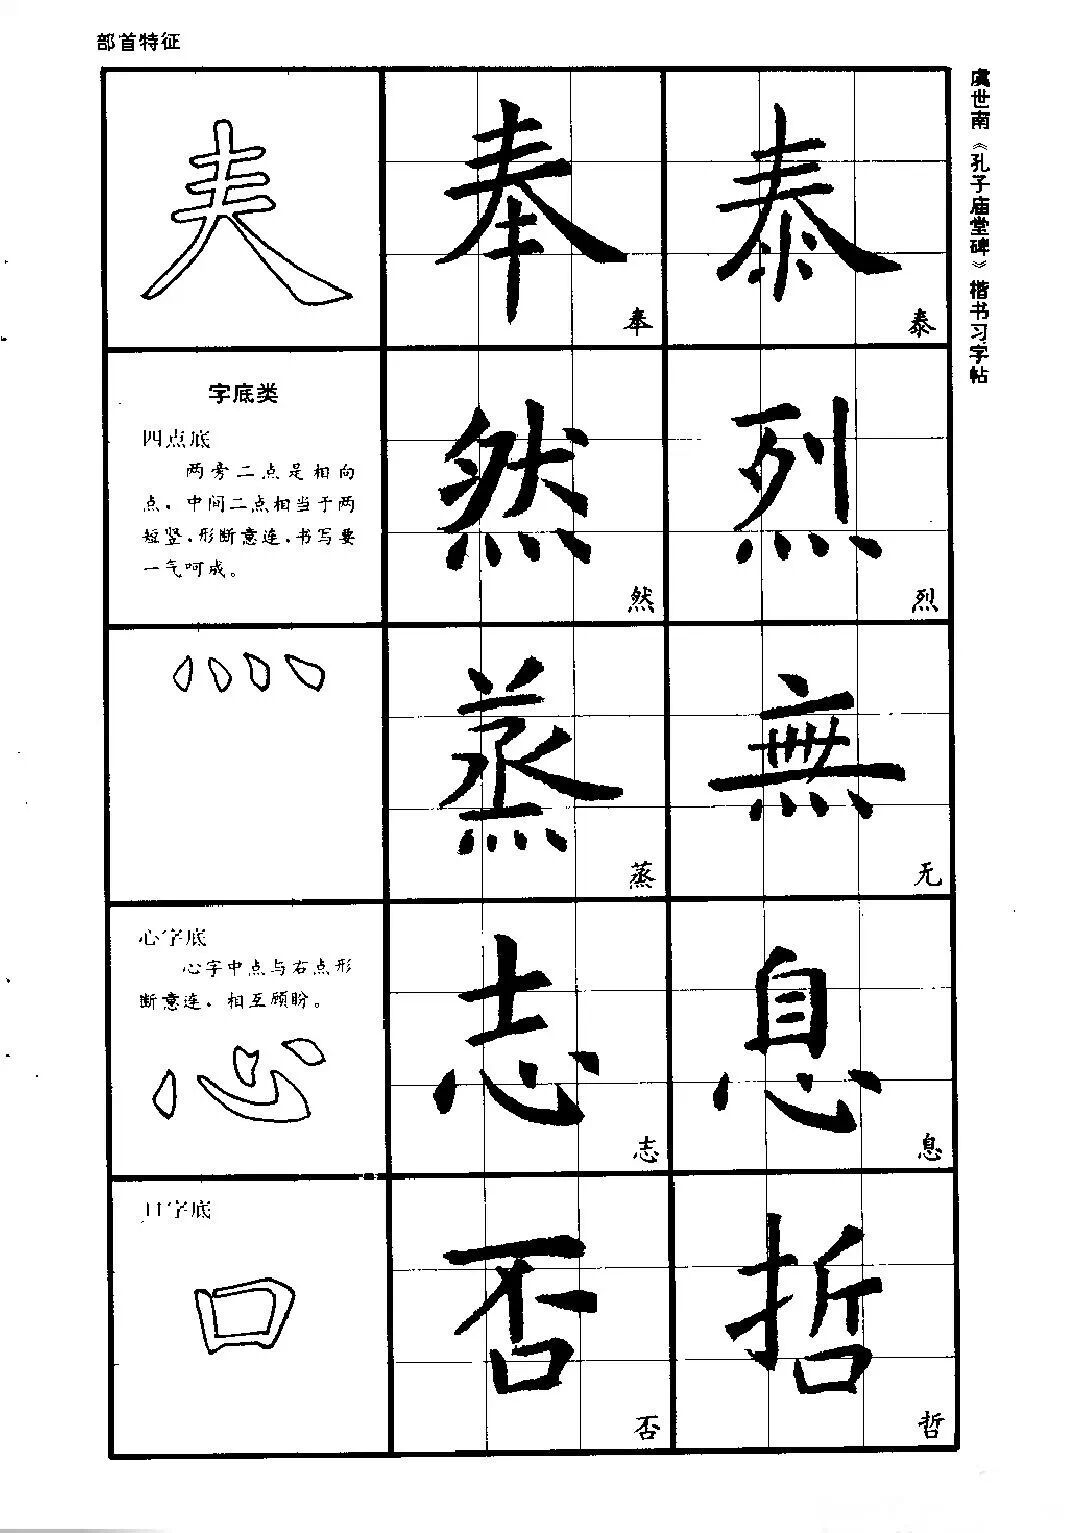 部首特征
虞世南《孔子庙堂碑》楷书习字帖
𡗗
奉
奉
泰
泰
字底类
四点底
两旁二点是相向
点，中间二点相当于两
短竖，形断意连，书写要
一气呵成。
然
然
烈
烈
灬
蒸
蒸
無
无
心字底
心字中点与右点形
断意连，相互顾盼。
心
志
志
息
息
口字底
口
否
否
哲
哲